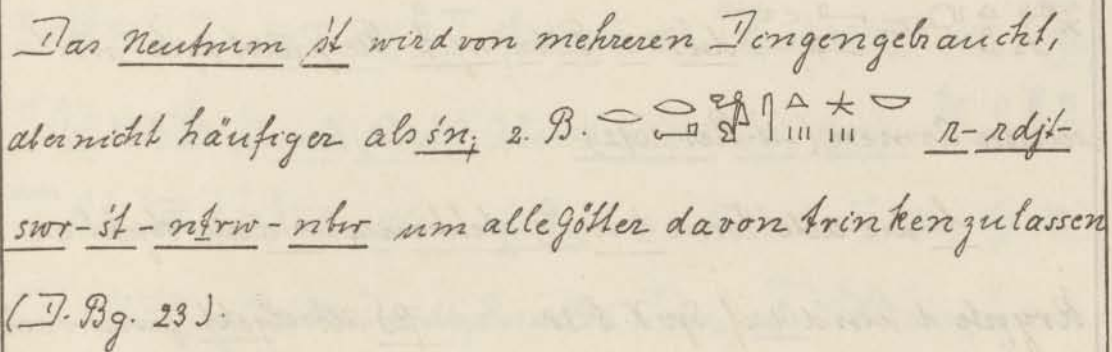 Das Neutrum śt wird von mehreren Dingen gebraucht,
aber nicht häufiger als śn; z. B. r-rdjt-
swr-śt-nṯrw-nbw um alle Götter davon trinken zu lassen
(D. Bg. 23).